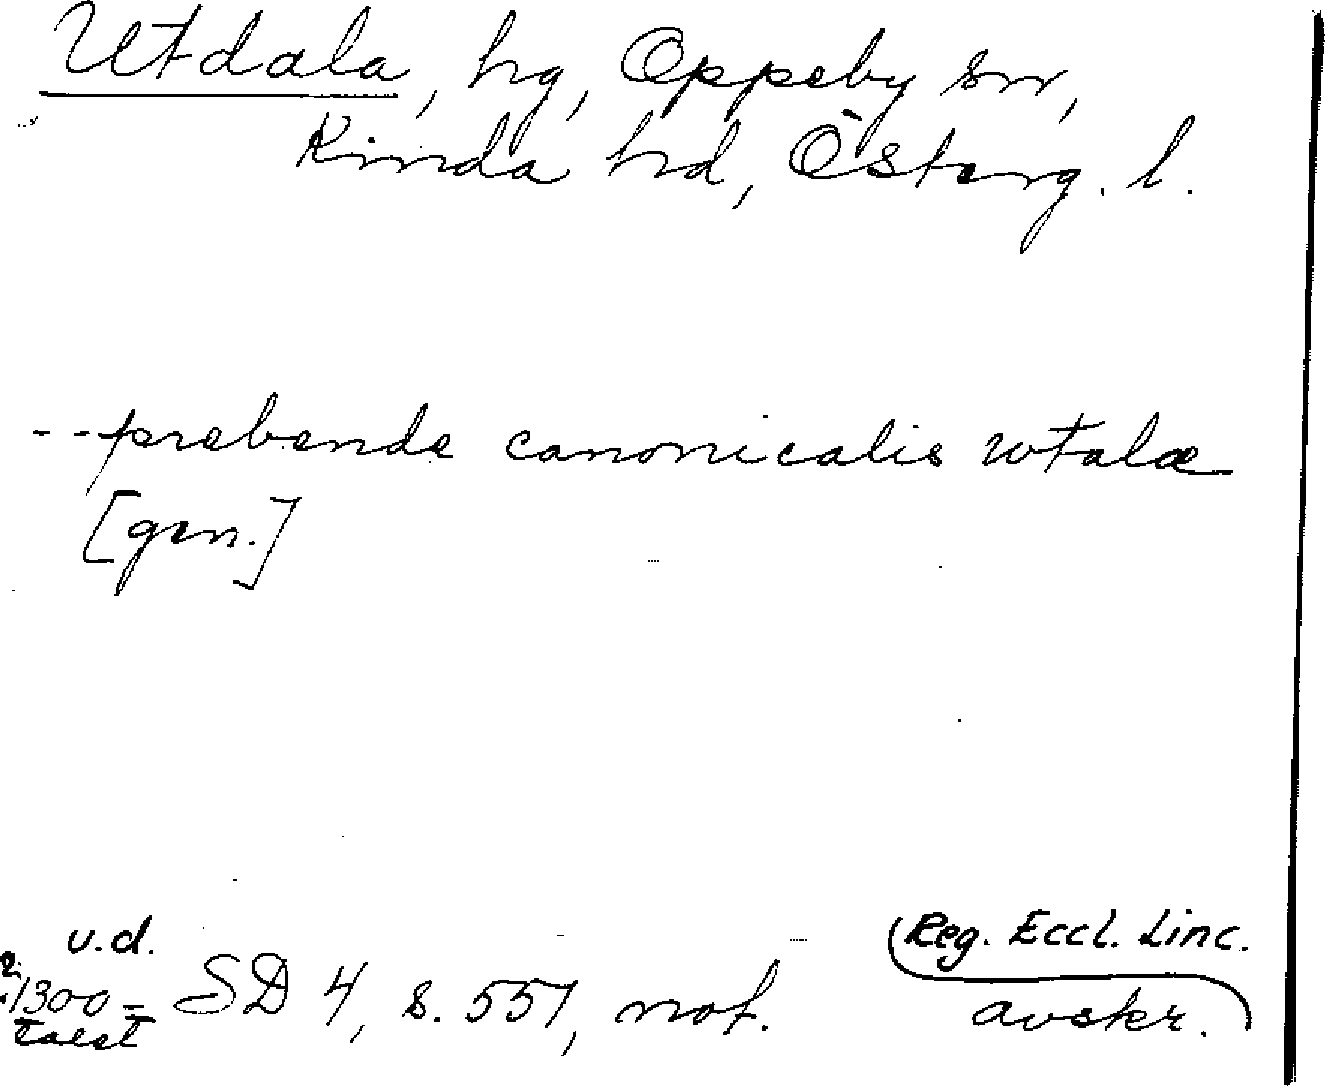 Utdala, hg, Oppeby sn,
Kinda hd, Österg. l.
--prebende canonicalis wtalæ
[gen.]
u.d.
1300-
talet
SD 4, s. 557, not.
(Reg. Eccl. Linc.
avskr.)